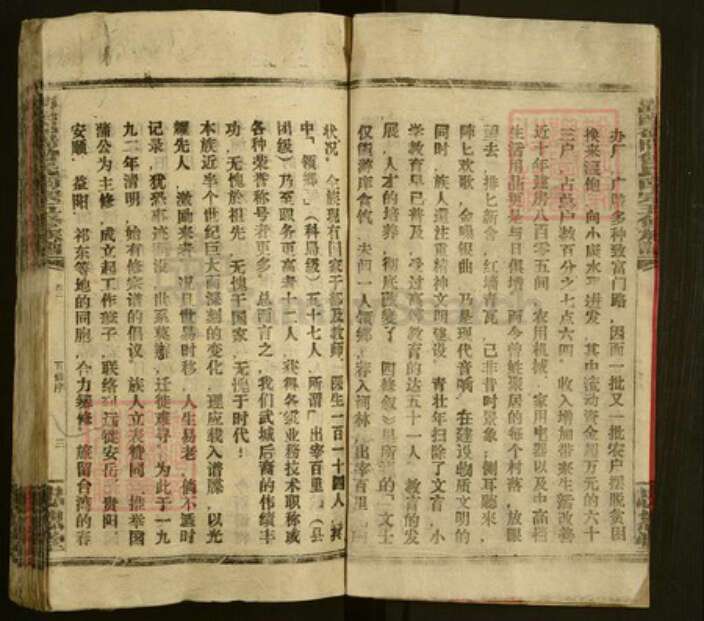 办厂、广辟多种致富门路，因而一批又一批农户摆脱贫困
换来温饱，向小康水平进发，其中流动资金超万元的六十
三户，占总户数百分之七点六四，收入增加带来生活改善
近十年建房八百零五间，农用机械、家用电器以及中高档
生活用品更是与日俱增，而今曾姓聚居的每个村落，放眼
望去，排比新舍，红墙青瓦，已非昔时景象；侧耳聽来，
阵七欢歌，金嗓银曲，乃是现代音响。在建设物质文明的
同时，族人还注重精神文明建设，青壮年扫除了文盲，小
学教育早已普及，受过高等教育的达五十一人，教育的发
展，人才的培养，彻底改变了四修叙里所谓的「文士
仅 庠食饩，夫间一人领乡荐入词林，出宰百里
状况。全族现有国家干部及教师、医生一百一十四人，其
中「领乡」（科局级）五十七人，所谓「出宰百里」（县
团级）乃至职务更高者十二人，获得各级业务技术职称或
各种荣誉称号者更多，总而言之，我们武城后裔的伟绩丰
功，无愧於祖先，无愧于国家，无愧于时代！
本族近半个世纪巨大而深刻的变化，理应载入谱牒，以光
耀先人，激励来者，况且世易时移，人生易老，倘不适时
记录，犹恐事迹 没，世系莫悉，迁徙难寻，为此于一九
九二年清明，始有修宗谱的倡议，族人立表赞同，推举国
蒲公为主修，成立起工作班子，联络到远徙安岳、贵阳、
安顺、益阳、祁东等地的同胞，合力纂修，旅留台湾的春
卷一
三